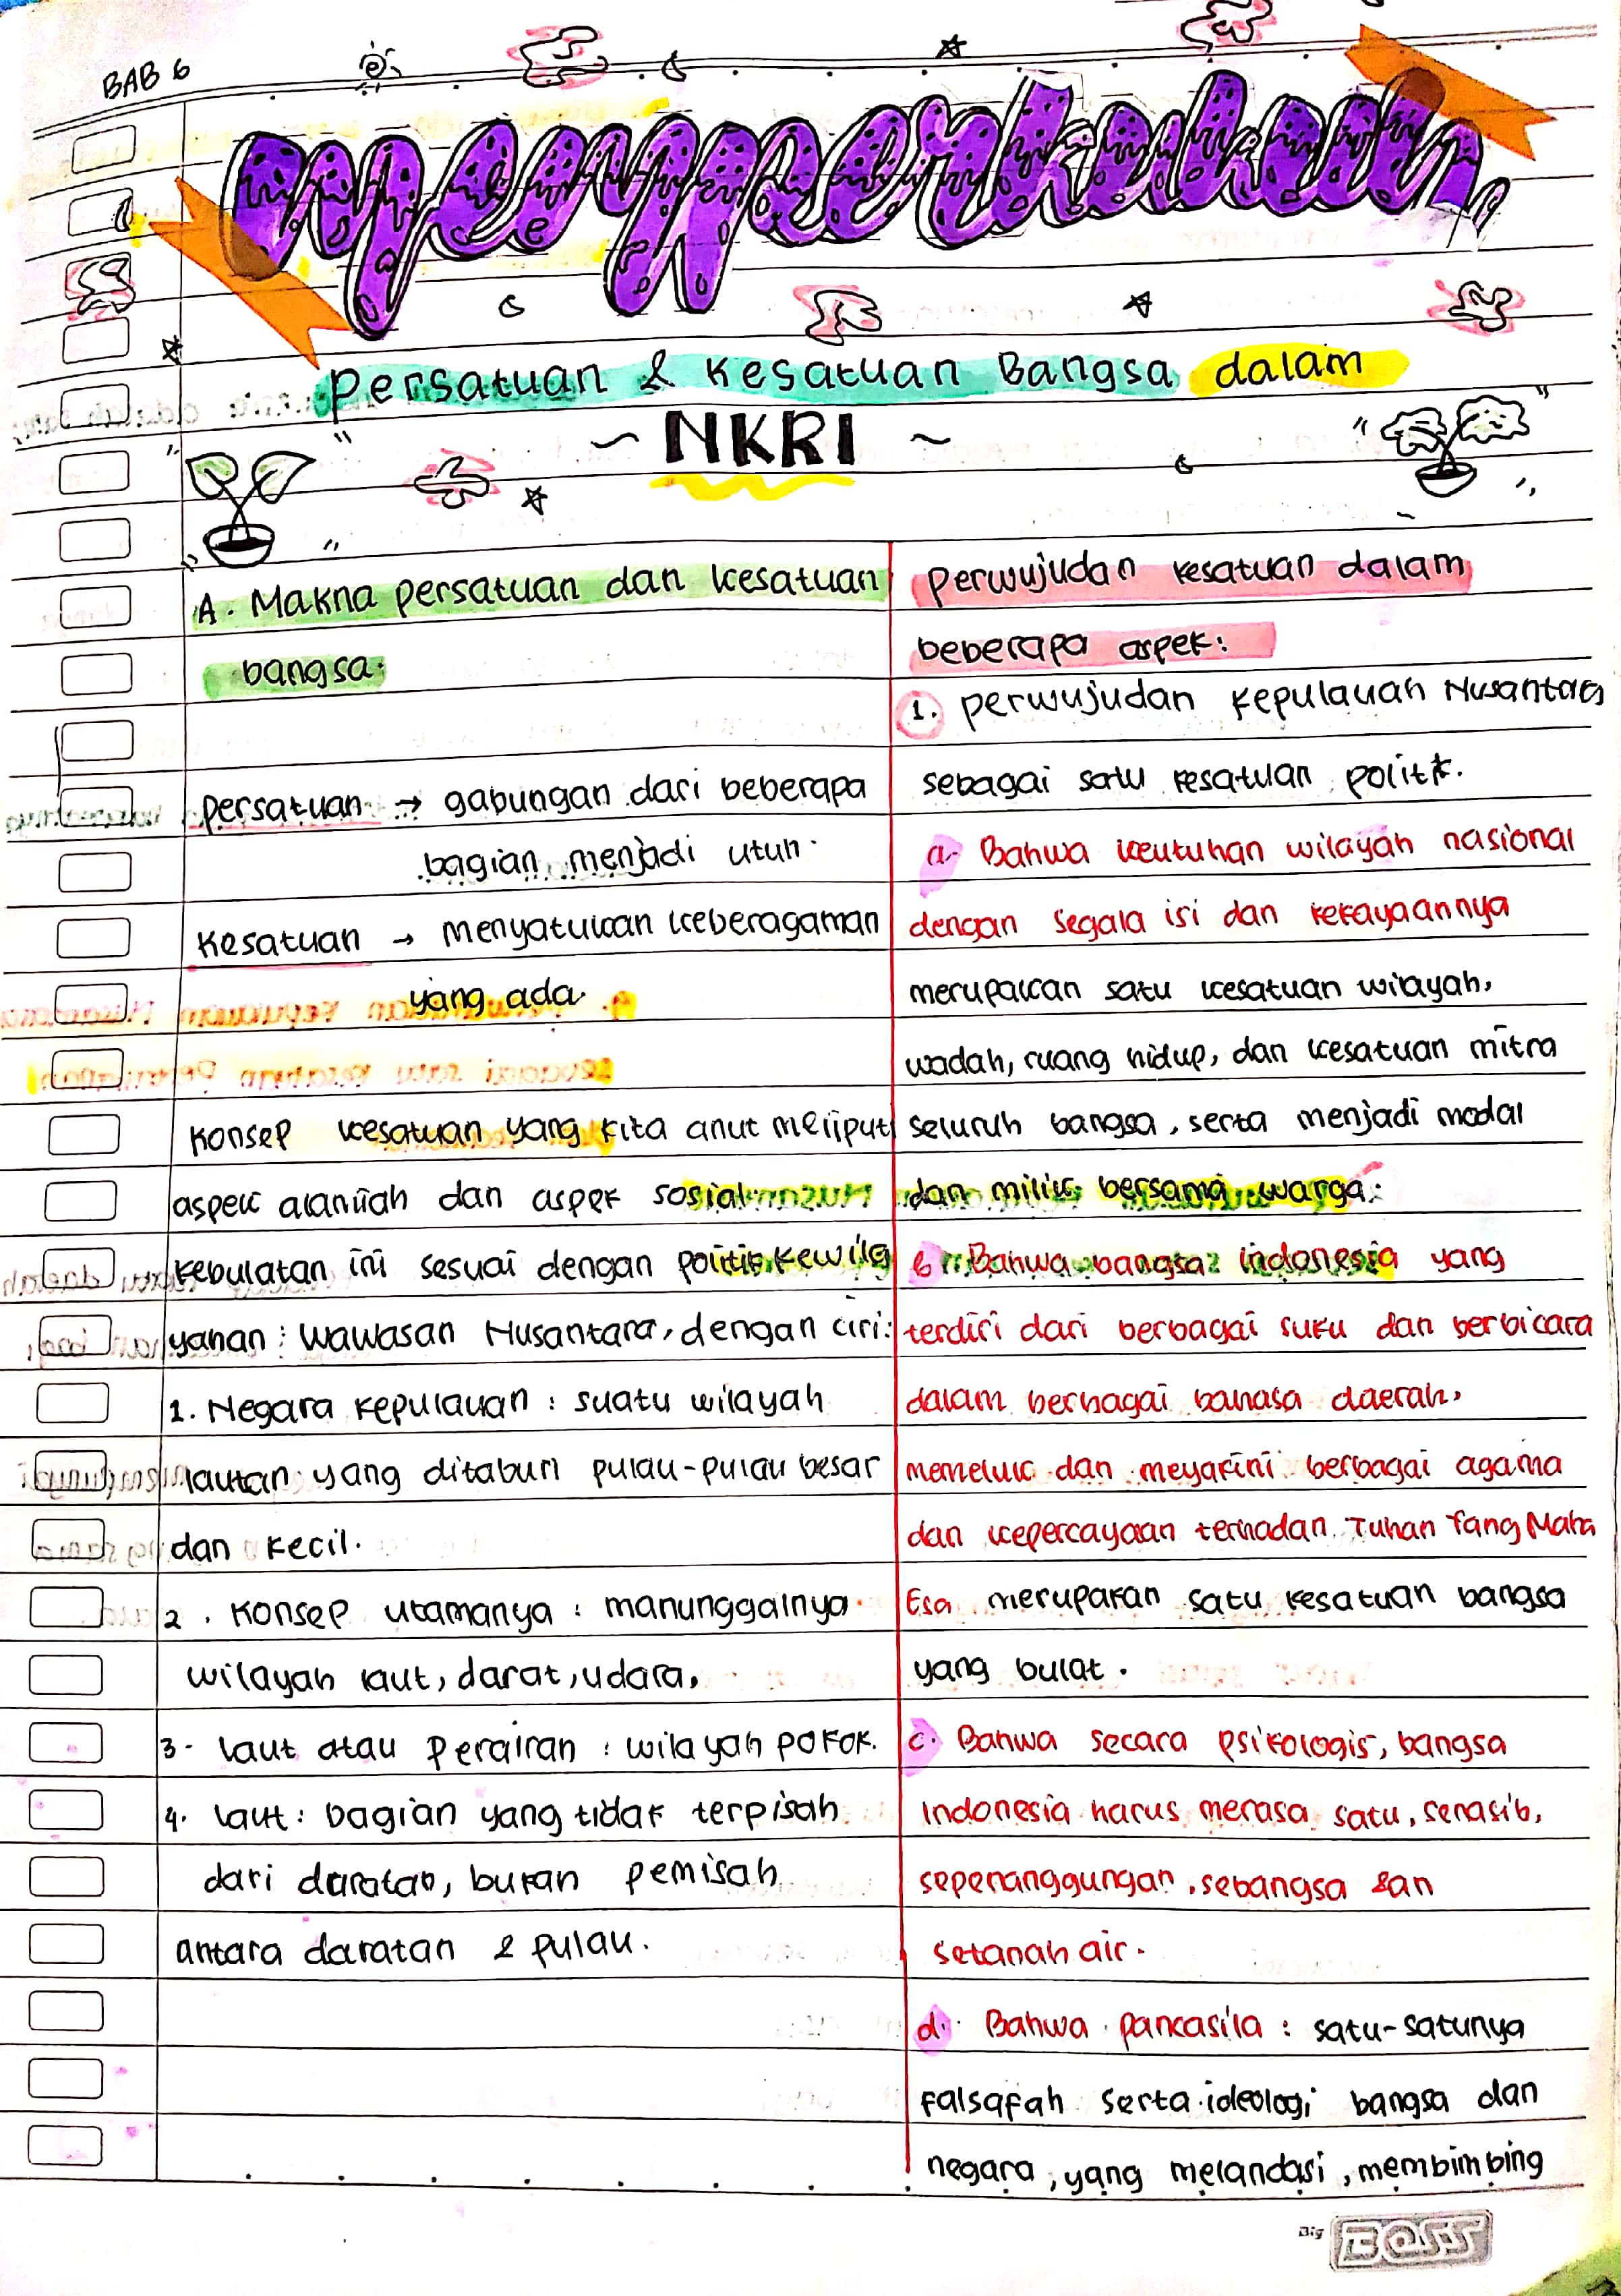 BAB 6
Memperkukuh
Persatuan & Kesatuan Bangsa dalam
~ NKRI ~
A. Makna persatuan dan kesatuan
bangsa.
persatuan → gabungan dari beberapa
bagian menjadi utuh.
Kesatuan → menyatukan keberagaman
yang ada.
Konsep kesatuan yang kita anut meliputi
aspek alamiah dan aspek sosial
kebulatan ini sesuai dengan politik kewila
yahan : wawasan Nusantara, dengan ciri:
1. Negara kepulauan : suatu wilayah
lautan yang ditaburi pulau-pulau besar
dan kecil.
2. Konsep utamanya : manunggalnya
wilayah laut, darat, udara,
3. laut atau perairan : wilayah pokok.
4. laut : bagian yang tidak terpisah
dari daratan, bukan pemisah
antara daratan & pulau.
perwujudan kesatuan dalam
beberapa aspek:
1. perwujudan kepulauan Nusantara
sebagai satu kesatuan politk.
a. Bahwa keutuhan wilayah nasional
dengan segala isi dan kekayaannya
merupakan satu kesatuan wilayah,
wadah, ruang hidup, dan kesatuan mitra
seluruh bangsa, serta menjadi modal
dan milik bersama warga.
b. Bahwa bangsa indonesia yang
terdiri dari berbagai suku dan berbicara
dalam berbagai bahasa daerah,
memeluk dan meyakini berbagai agama
dan kepercayaan terhadap Tuhan Yang Maha
Esa merupakan satu kesatuan bangsa
yang bulat.
c. Bahwa secara psikologis, bangsa
indonesia harus merasa satu, senasib,
sepenanggungan, sebangsa dan
setanah air.
d. Bahwa pancasila : satu-satunya
falsafah serta ideologi bangsa dan
negara, yang melandasi, membimbing
Big BOSS